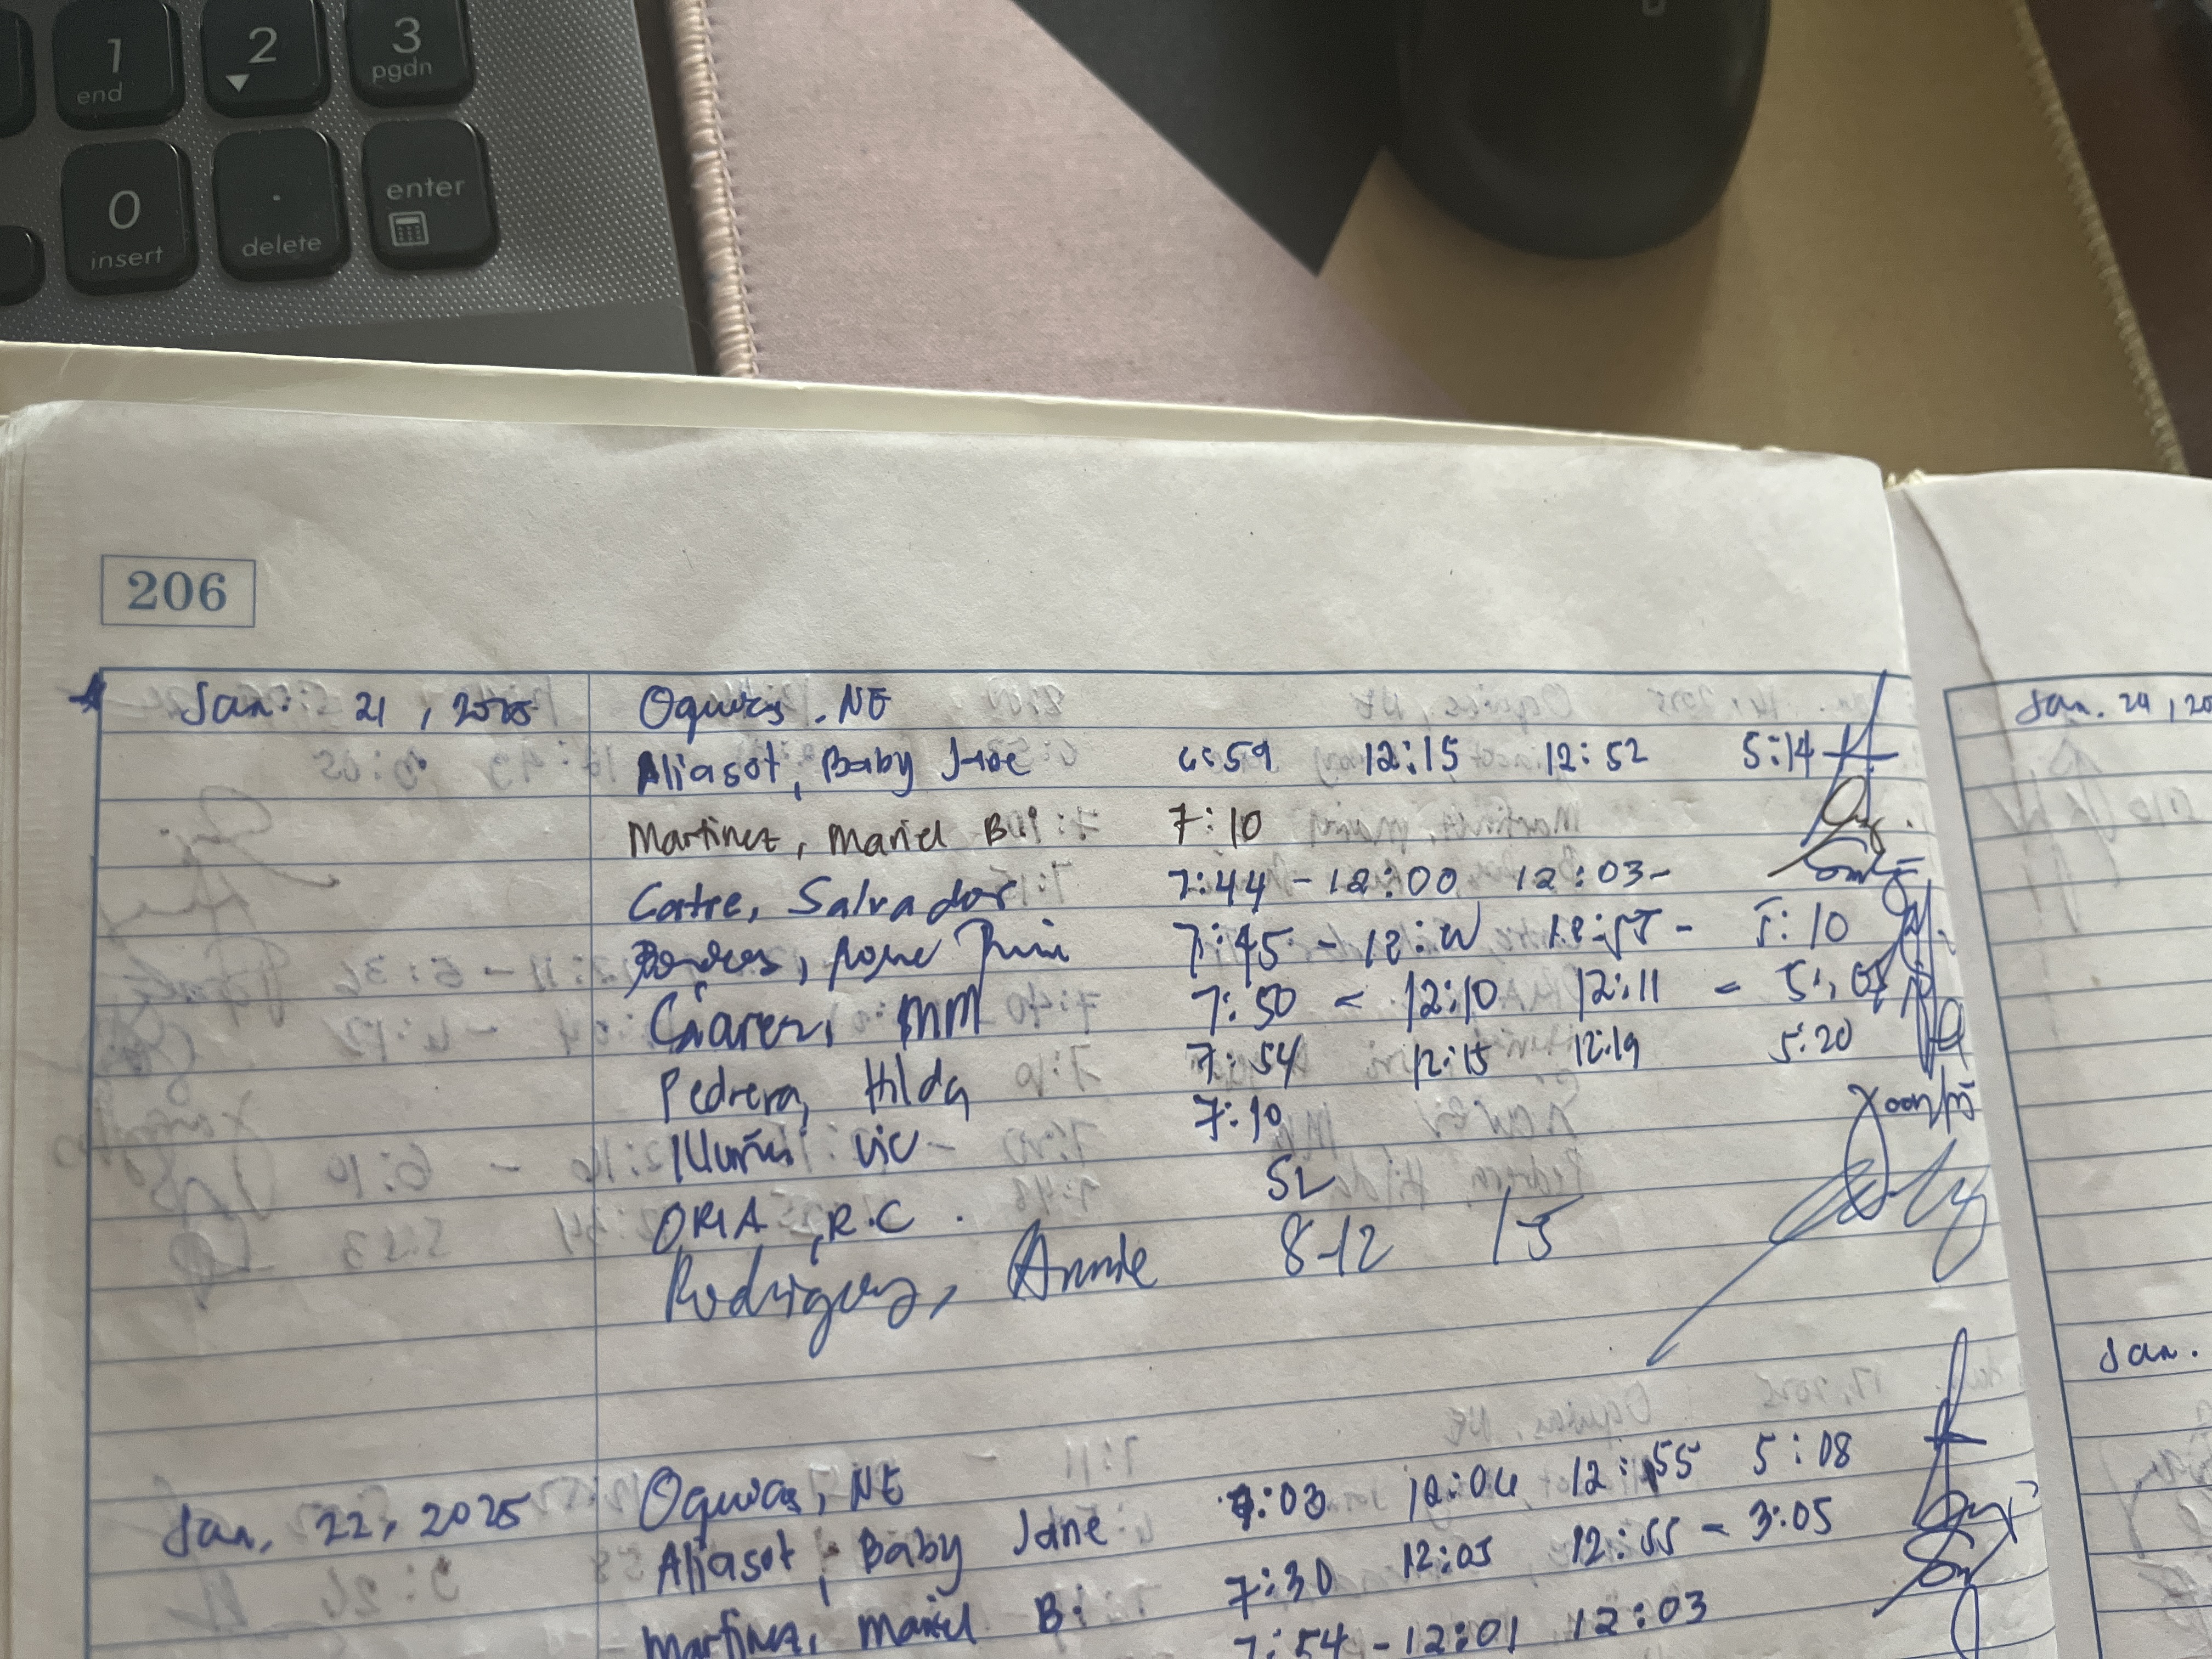 1 2 3
end pgdn
0 . enter
insert delete
206
Jan. 21, 2025 Oquias, NE
Aliasot, Baby Jane 6:59 12:15 12:52 5:14
Martinez, Mariel B. 7:10
Catre, Salvador 7:44 - 12:00 12:03-
7:45 - 12: 12:55 - 5:10
MM 7:50 - 12:10 12:11 - 5:05
Pedrera, Hilda 7:54 12:15 12:19 5:20
Vic 7:10
ORIA, R.C. SL
Rodriguez, Annie 8-12 1-5
Jan. 22, 2025 Oquias, NE
Aliasot, Baby Jane 7:03 12:04 12:55 5:08
Martinez, Mariel B. 7:30 12:05 12:55 - 3:05
7:54 - 12:01 12:03
Jan. 24, 20
Jan.